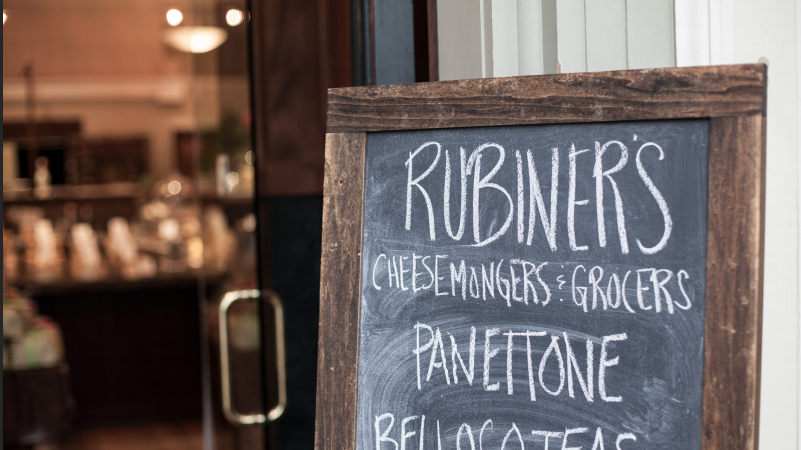 RUBINER'S
CHEESEMONGERS & GROCERS
PANETTONE
BELLOCQ TEAS